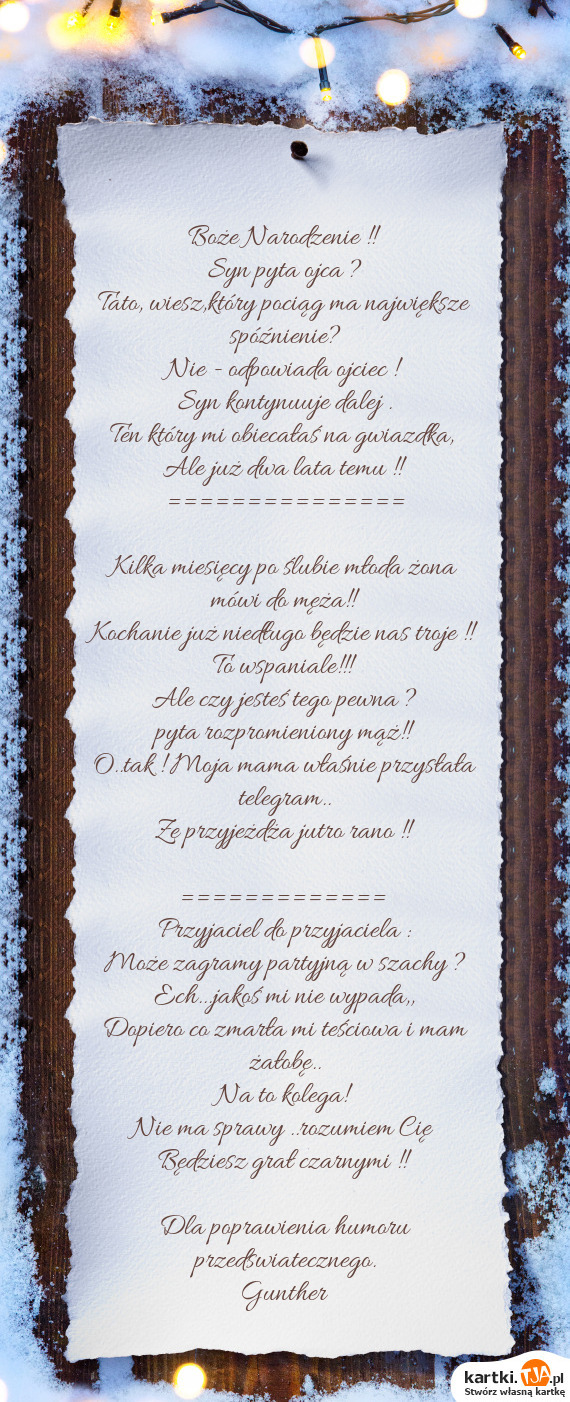 Boże Narodzenie !!
Syn pyta ojca ?
Tato, wiesz,który pociąg ma największe
spóźnienie?
Nie - odpowiada ojciec !
Syn kontynuuje dalej .
Ten który mi obiecałaś na gwiazdkę,
Ale już dwa lata temu !!
===============
Kilka miesięcy po ślubie młoda żona
mówi do męża!!
Kochanie już niedługo będzie nas troje !!
To wspaniale!!!
Ale czy jesteś tego pewna ?
pyta rozpromieniony mąż!!
O..tak ! Moja mama właśnie przysłała
telegram..
Ze przyjeżdża jutro rano !!
=============
Przyjaciel do przyjaciela :
Może zagramy partyjną w szachy ?
Ech...jakoś mi nie wypada,,
Dopiero co zmarła mi teściowa i mam
żałobę..
Na to kolega!
Nie ma sprawy ..rozumiem Cię
Będziesz grał czarnymi !!
Dla poprawienia humoru
przedświatecznego.
Gunther
kartki.TJA.pl
Stwórz własną kartkę